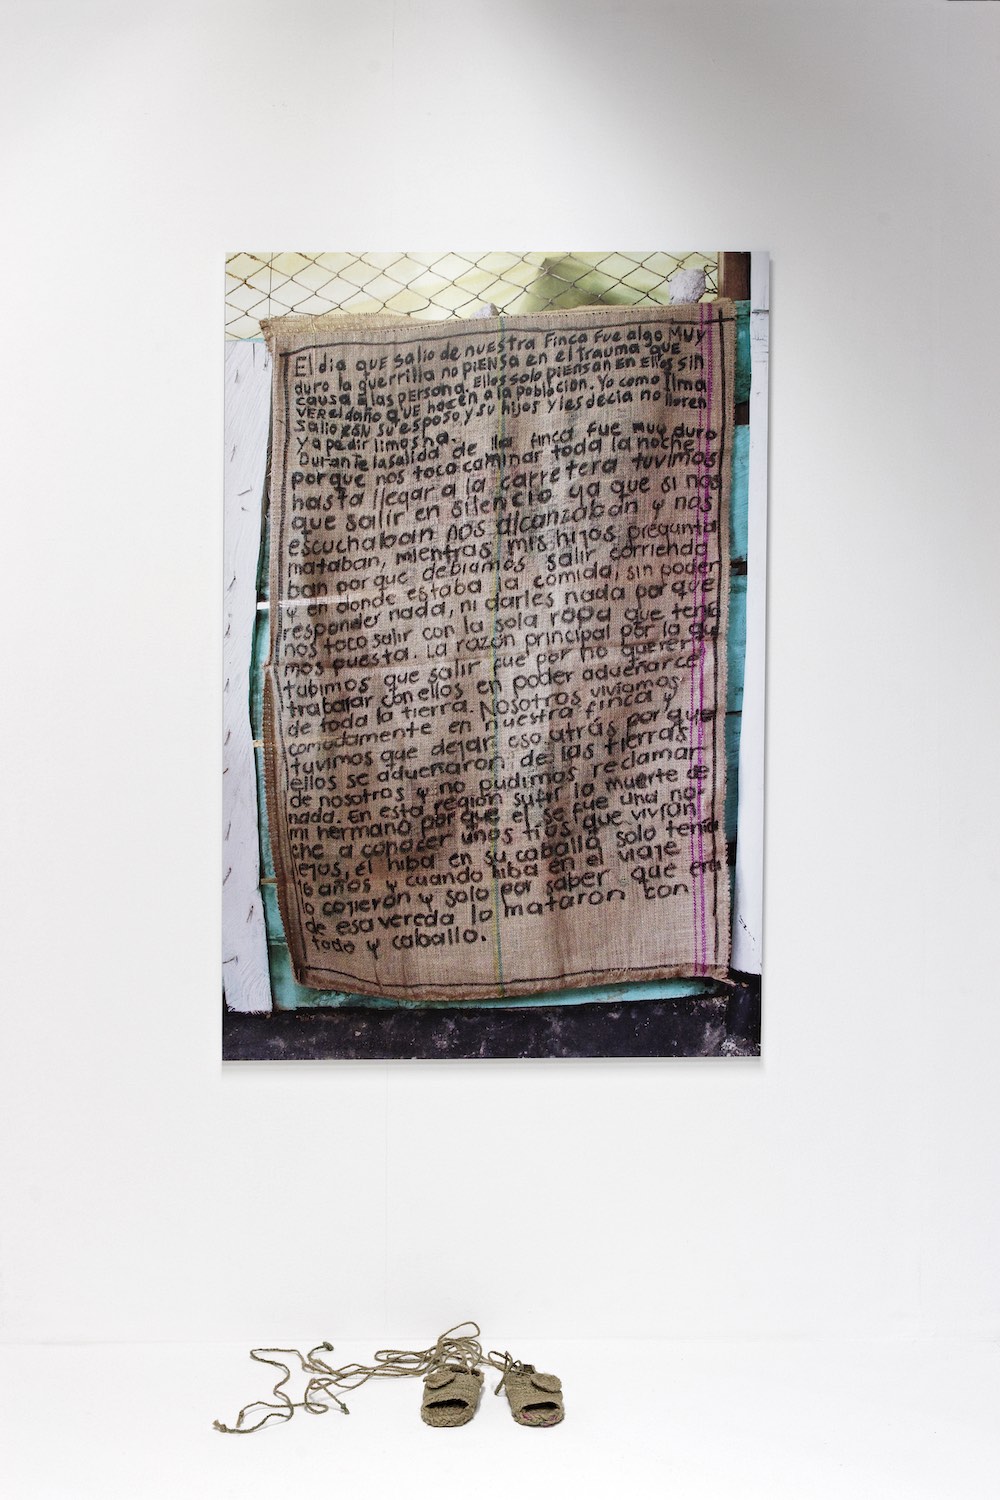 El dia que salio de nuestra Finca Fue algo Muy
duro la guerrilla no piensa en el trauma que
causa a las persona. Ellos solo piensan en Ellos sin
ver el daño que hacen a la poblacion. Yo como
salio con su esposo y su hijos y les decia no lloren
y a pedir limosna.
Durante la salida de lla finca fue muy duro
porque nos toco caminar toda la noche
hasta llegar a la carretera tuvimos
que salir en silencio ya que si nos
escuchaban nos alcanzaban y nos
mataban, mientras mis hijos pregunta
ban porque debiamos salir corriendo
y en donde estaba la comida, sin poder
responder nada, ni darles nada porque
nos toco salir con la sola ropa que tení
mos puesta. La razón principal por la qu
tubimos que salir fue por no querer
trabajar con ellos en poder adueñarce
de toda la tierra. Nosotros viviamos
comodamente en nuestra finca y
tuvimos que dejar eso atrás porque
ellos se adueñaron de las tierras
de nosotros y no pudimos reclamar
nada. En esta región sufri la muerte de
mi hermano porque el se fue una no-
che a conocer unos tios que vivian
lejos, él hiba en su caballo solo tenia
16 años y cuando hiba en el viaje
lo cojieron y solo por saber que era
de esa vereda lo mataron con
todo y caballo.